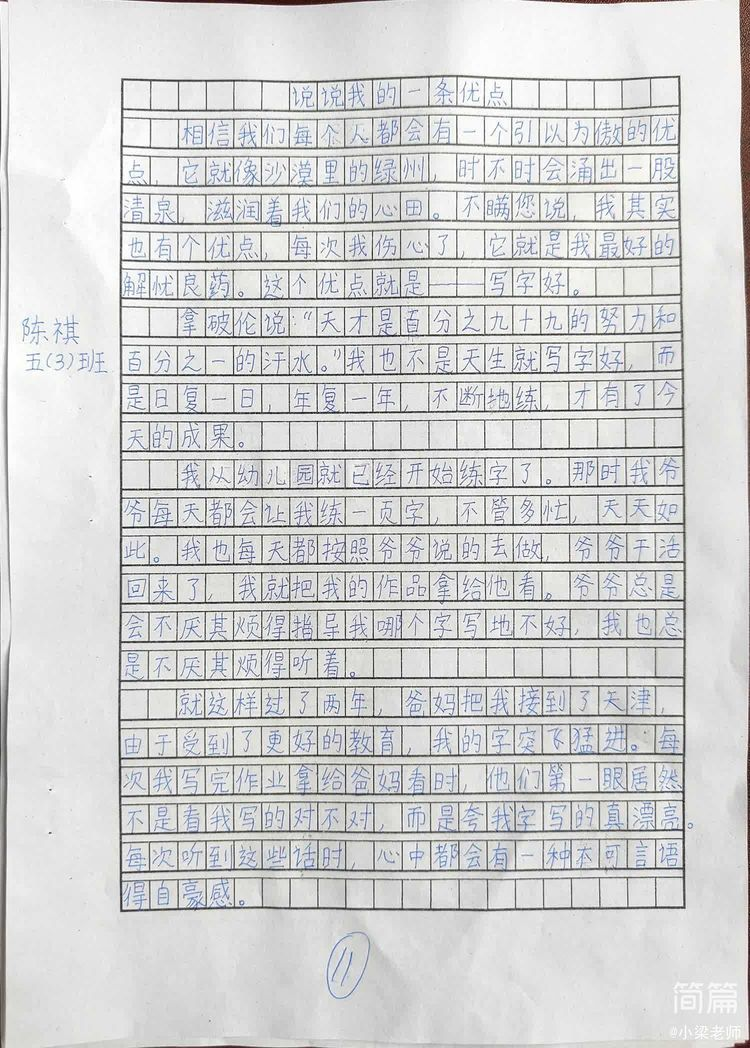 说说我的一条优点
相信我们每个人都会有一个引以为傲的优
点，它就像沙漠里的绿州，时不时会涌出一股
清泉，滋润着我们的心田。不瞒您说，我其实
也有个优点，每次我伤心了，它就是我最好的
解忧良药。这个优点就是——写字好。
拿破伦说：“天才是百分之九十九的努力和
百分之一的汗水。”我也不是天生就写字好，而
是日复一日，年复一年，不断地练，才有了今
天的成果。
我从幼儿园就已经开始练字了。那时我爷
爷每天都会让我练一页字，不管多忙，天天如
此。我也每天都按照爷爷说的去做，爷爷干活
回来了，我就把我的作品拿给他看。爷爷总是
会不厌其烦得指导我哪个字写地不好，我也总
是不厌其烦得听着。
就这样过了两年，爸妈把我接到了天津，
由于受到了更好的教育，我的字突飞猛进。每
次我写完作业拿给爸妈看时，他们第一眼居然
不是看我写的对不对，而是夸我字写的真漂亮。
每次听到这些话时，心中都会有一种不可言语
得自豪感。
陈祺
五(3)班
11
简篇
@小梁老师